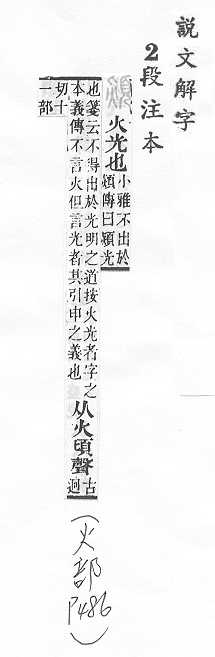 說文解字
2段注本
熲 火光也小雅不出於
熲傳曰熲光
也箋云不得出於光明之道按火光者字之
本義傳不言火但言光者其引申之義也
从火頃聲古迥
切十
一部
(火部
P486)